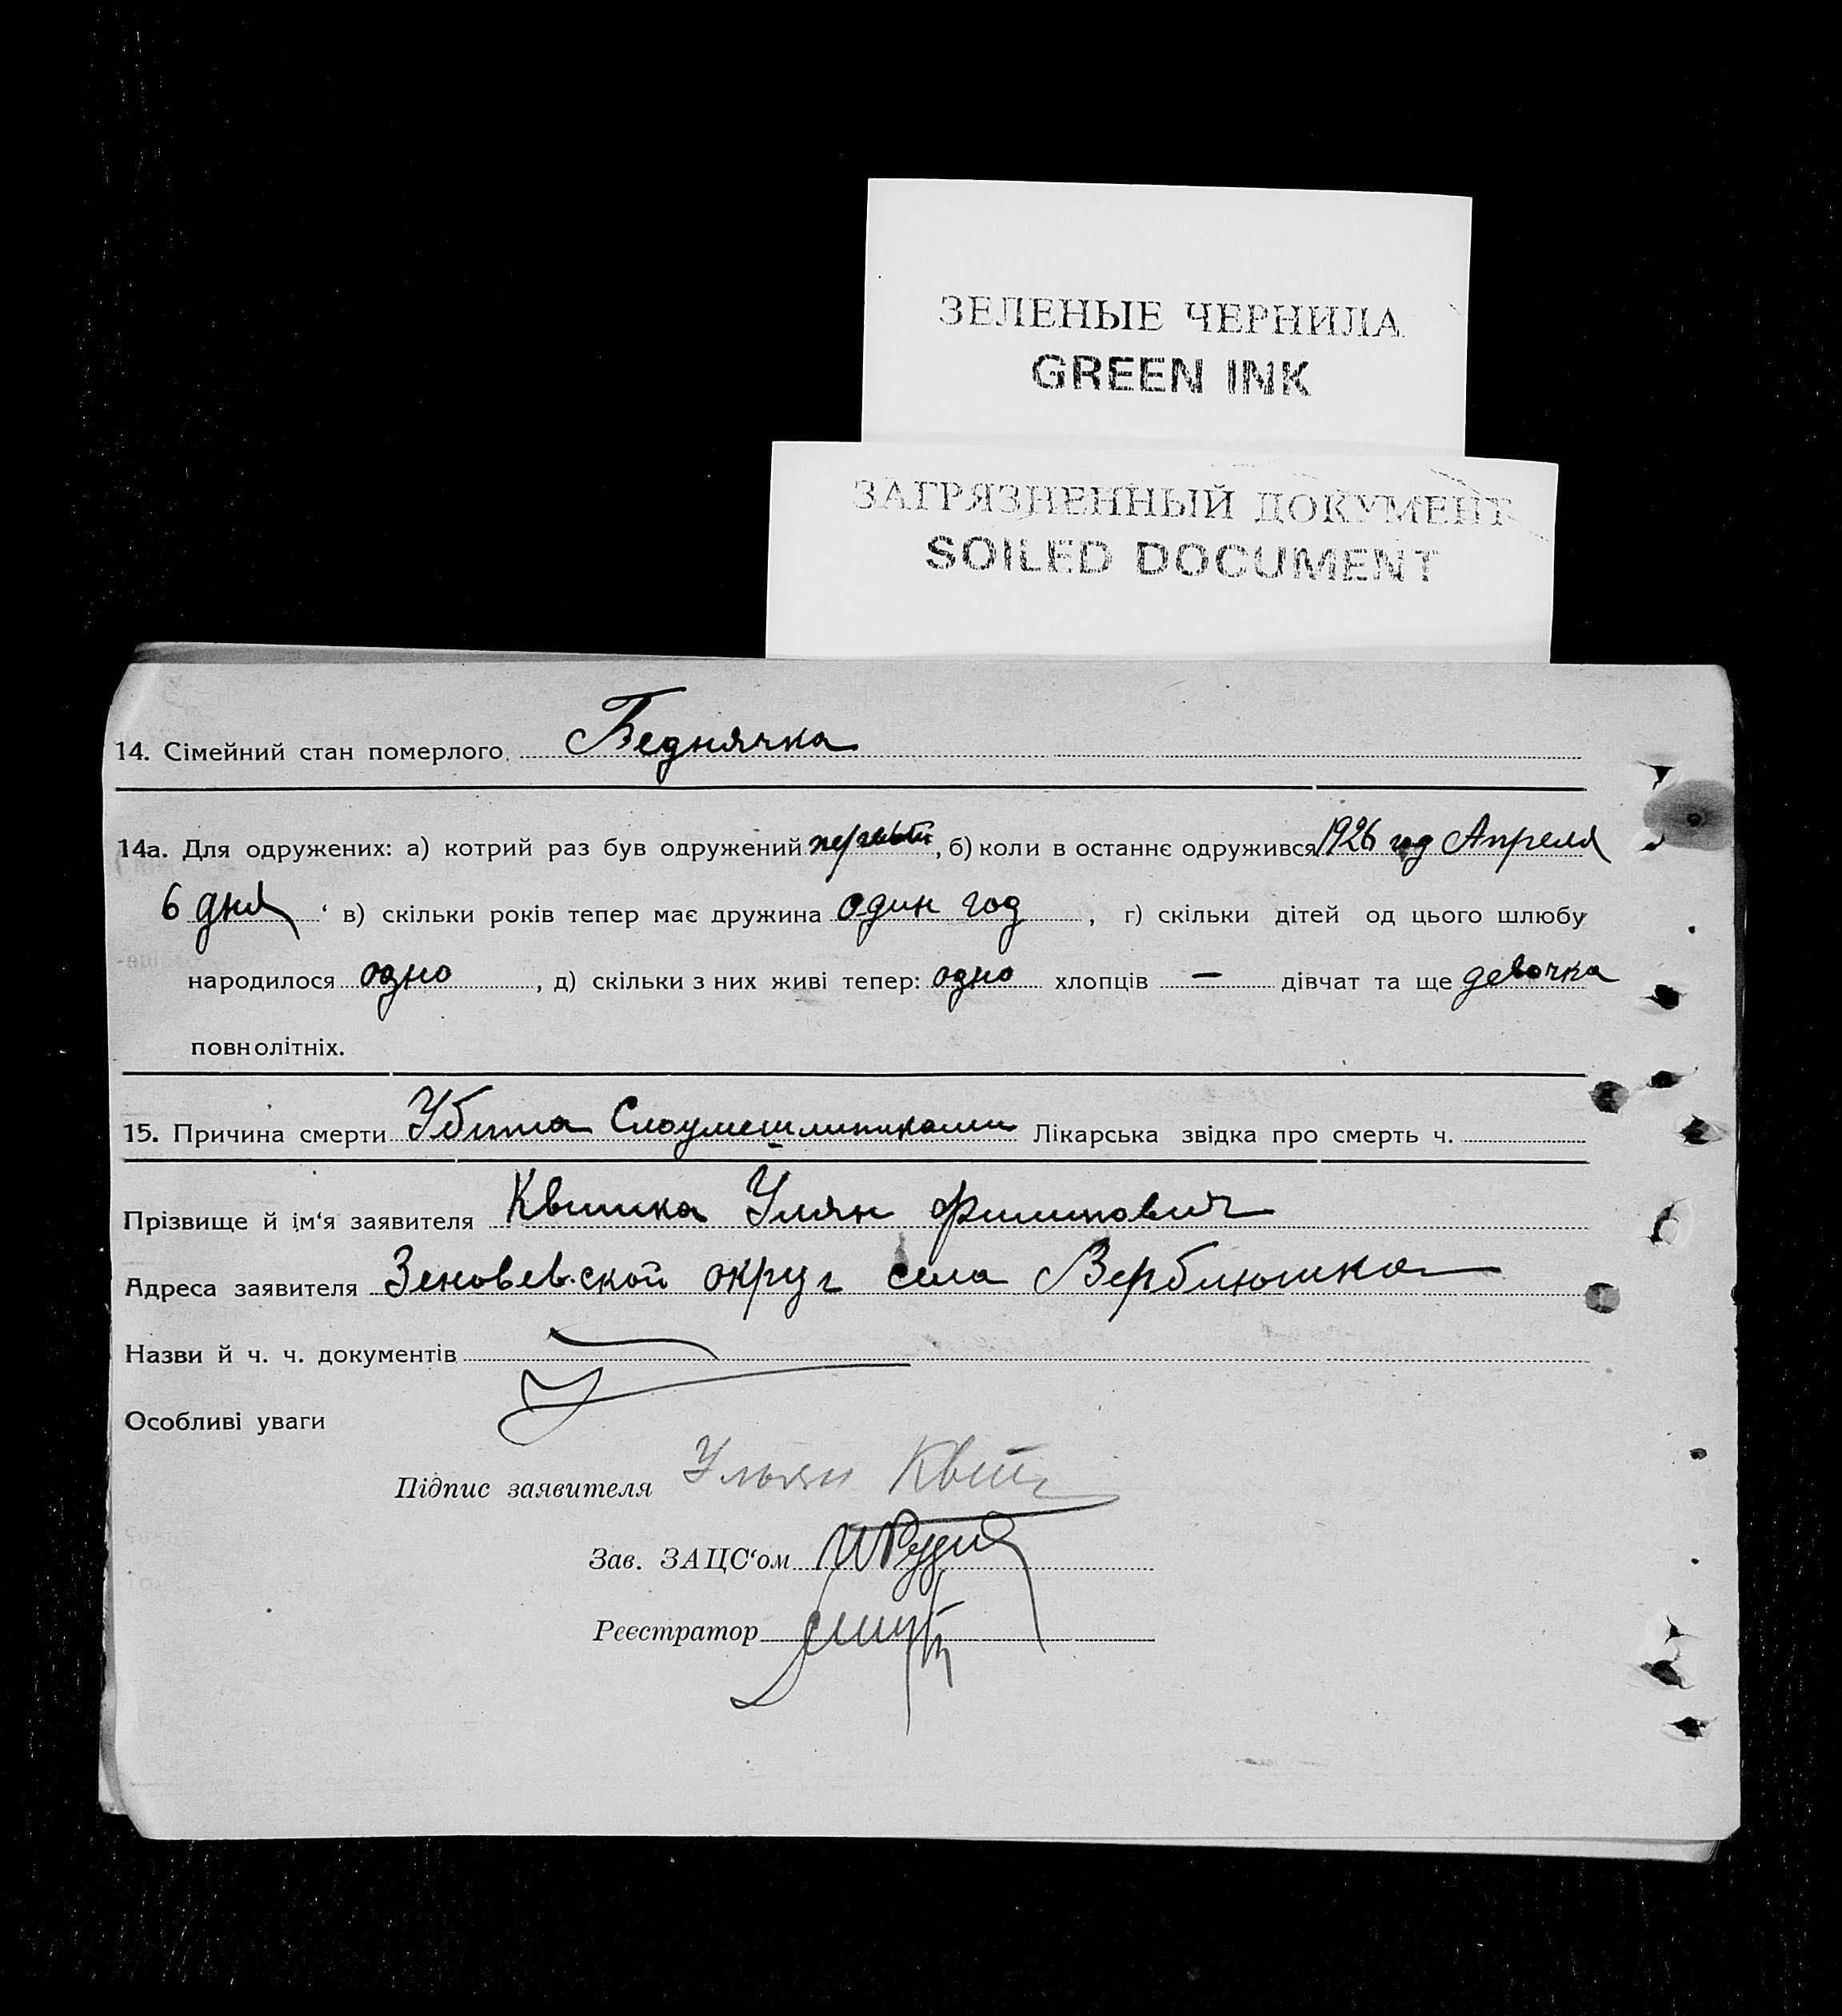 ЗЕЛЕНЫЕ ЧЕРНИЛА
GREEN INK
ЗАГРЯЗНЕННЫЙ ДОКУМЕНТ
SOILED DOCUMENT
14. Сімейний стан померлого Беднячка
14а. Для одружених: а) котрий раз був одружений первый, б) коли в останнє одружився 1926 год Апреля
6 дня в) скільки років тепер має дружина один год, г) скільки дітей од цього шлюбу
народилося одно, д) скільки з них живі тепер: одно хлопців — дівчат та ще девочка
повнолітніх.
15. Причина смерти Убита Слоумешлиниками Лікарська звідка про смерть ч.
Прізвище й ім‘я заявителя Квитка Улян Филипович
Адреса заявителя Зеновевской округ села Верблюшка
Назви й ч. ч. документів
Особливі уваги
Підпис заявителя Ульян Квит
Зав. ЗАЦС‘ом
Реєстратор